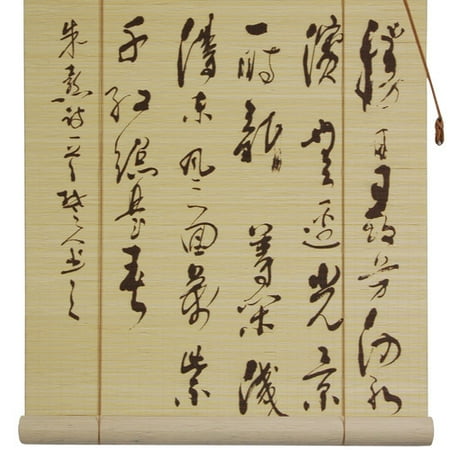 勝日尋芳泗水
濱無邊光景
一時新等閒識
得東風面萬紫
千紅總是春
朱熹詩一首